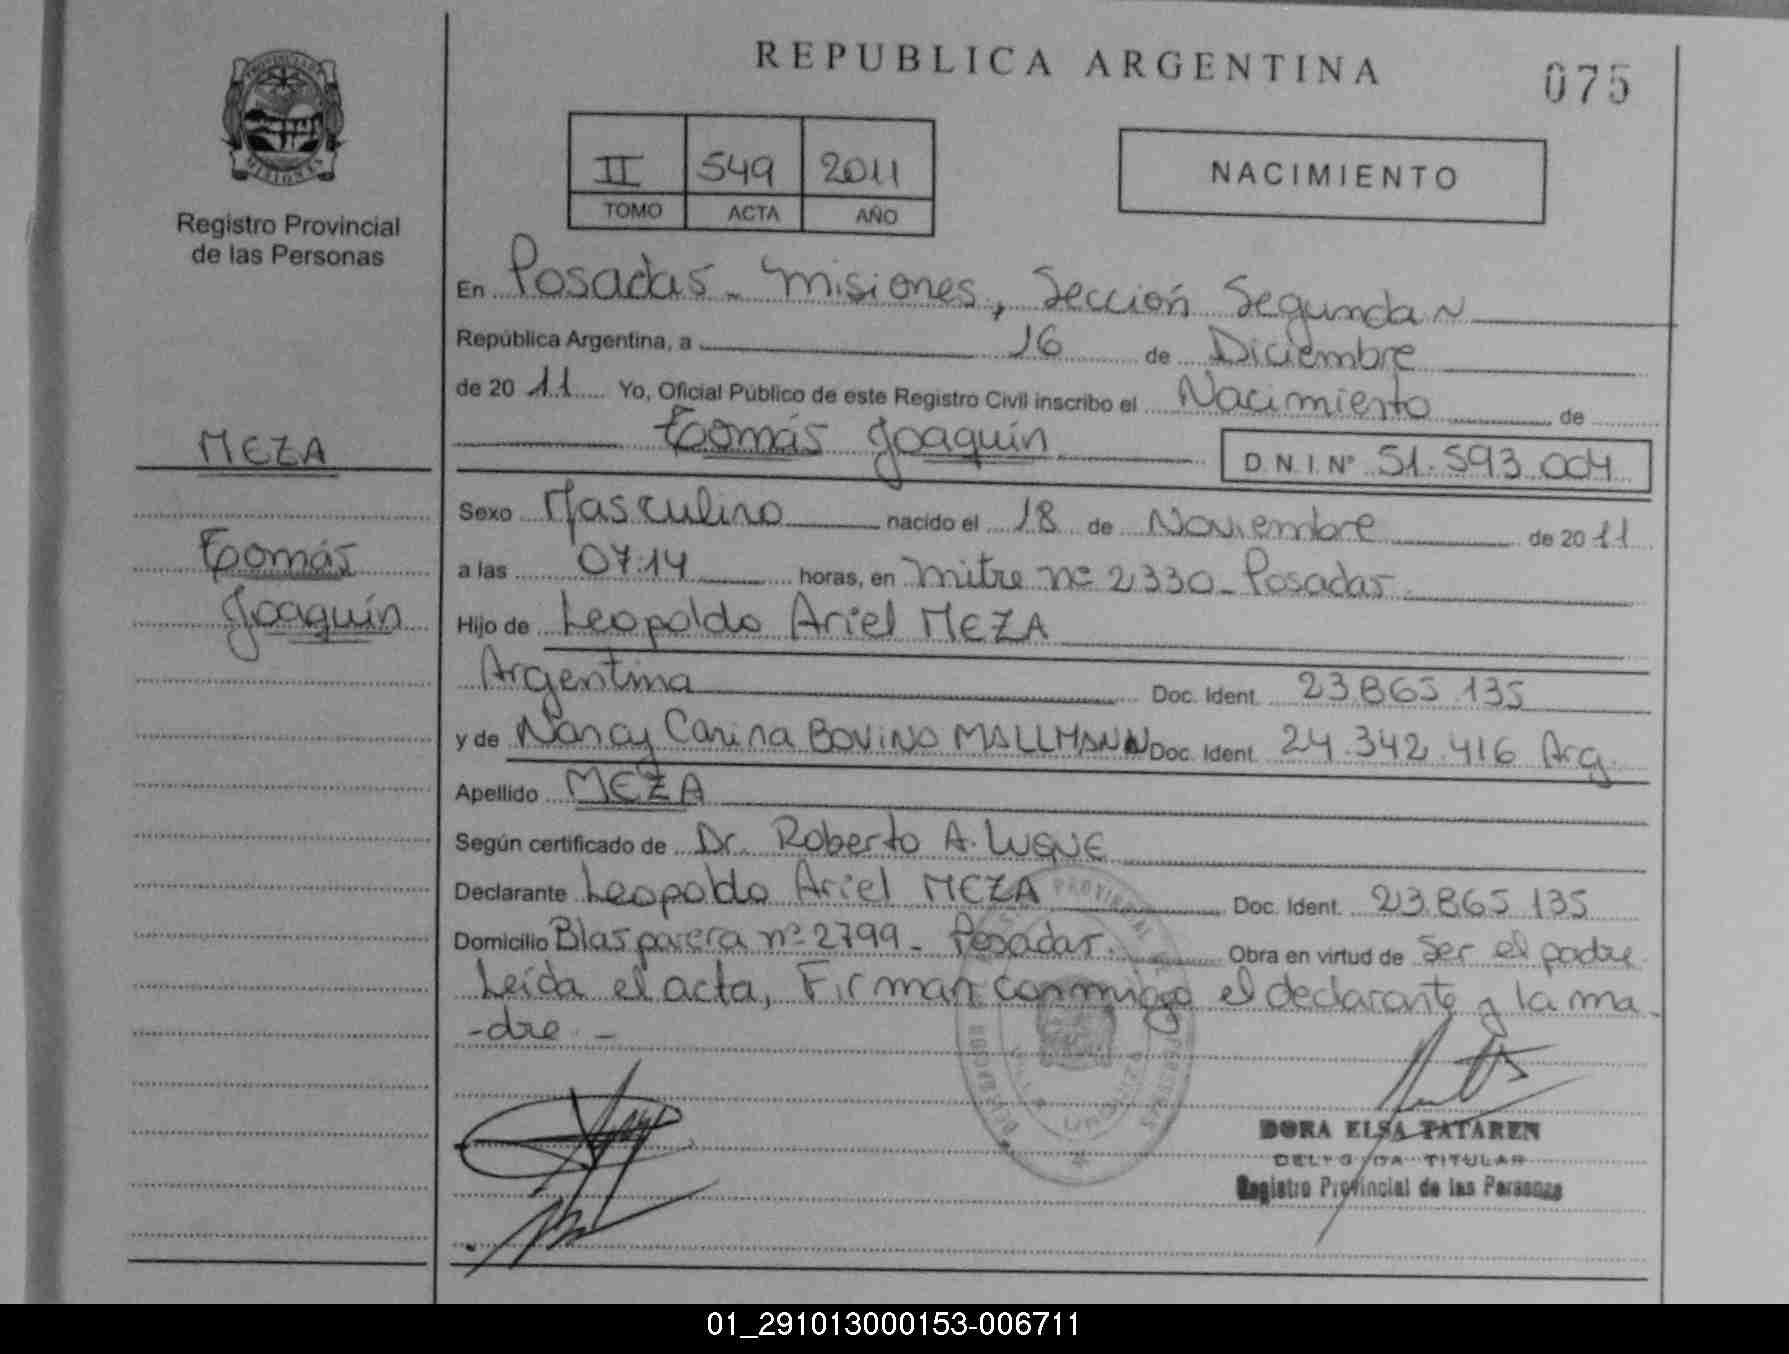 REPUBLICA ARGENTINA
075
PROVINCIA DE
MISIONES
Registro Provincial
de las Personas
II 549 2011
TOMO ACTA AÑO
NACIMIENTO
En Posadas - Misiones, Sección Segunda
República Argentina, a 16 de Diciembre
de 2011 Yo, Oficial Público de este Registro Civil inscribo el Nacimiento de
Tomás Joaquín D.N.I. Nº 51.593.004
MEZA
Tomás
Joaquín
Sexo Masculino nacido el 18 de Noviembre de 2011
a las 07:14 horas, en Mitre nº 2330 - Posadas.
Hijo de Leopoldo Ariel MEZA
Argentina Doc. Ident. 23.865.135
y de Nancy Carina BOVINO MALLMANN Doc. Ident. 24.342.416 Arg.
Apellido MEZA
Según certificado de Dr. Roberto A. LUQUE
Declarante Leopoldo Ariel MEZA Doc. Ident. 23.865.135
Domicilio Blas parera nº 2799 - Posadas. Obra en virtud de Ser el padre
Leída el acta, Firman conmigo el declarante y la ma-
-dre -
DORA ELSA TATAREN
DELEGADA TITULAR
Registro Provincial de las Personas
01_291013000153-006711